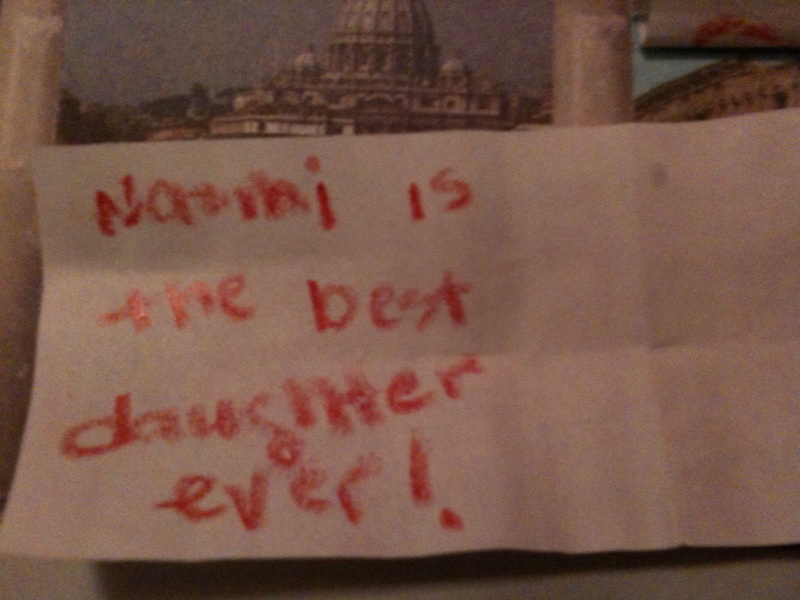 Naomi is
the best
daughter
ever!